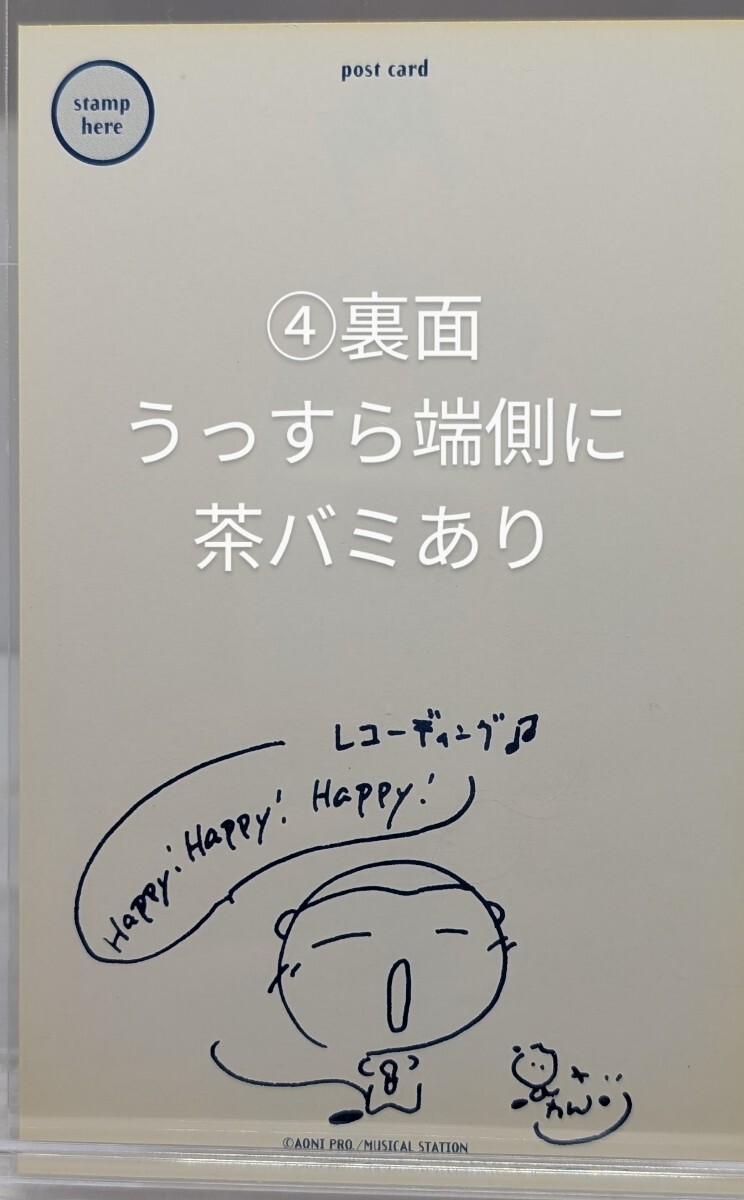 post card
stamp
here
④裏面
うっすら端側に
茶バミあり
レコーディング♫
Happy! Happy! Happy!
©AONI PRO./MUSICAL STATION